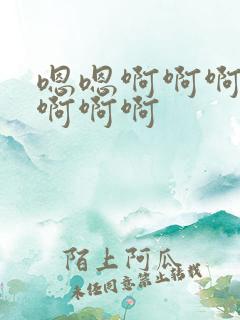 嗯嗯啊啊啊
啊啊啊
陌上阿瓜
未经同意禁止转载